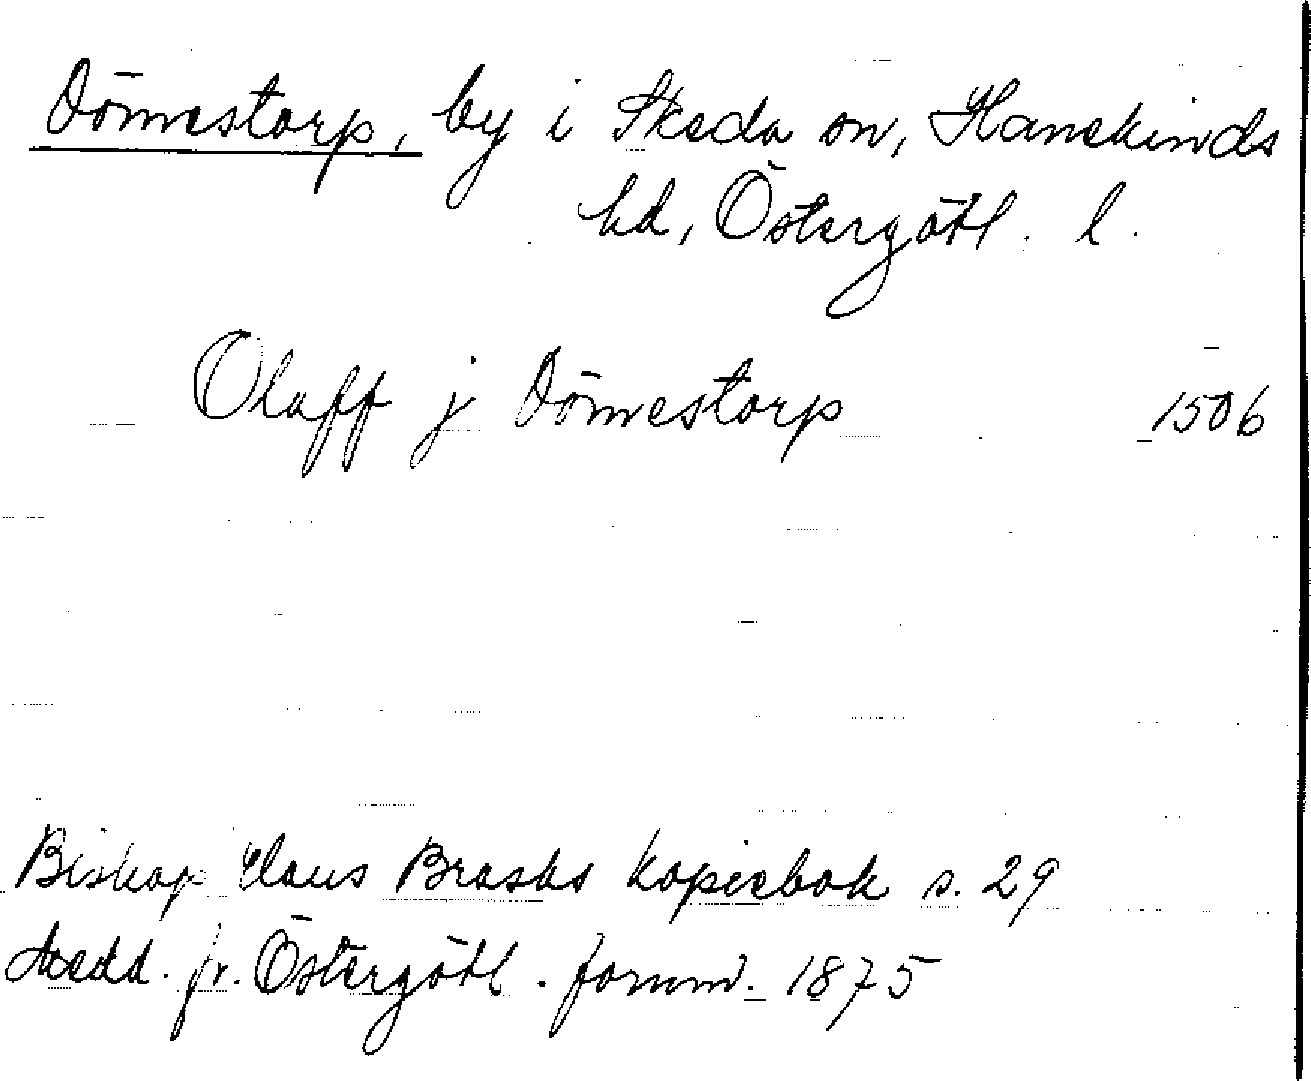 Dömestorp, by i Skeda sn, Hanekinds
hd, Östergötl. l.
Olaff j Dömestorp 1506
Biskop Hans Brasks kopiebok s. 29
Medd. fr. Östergötl. fornm. 1875